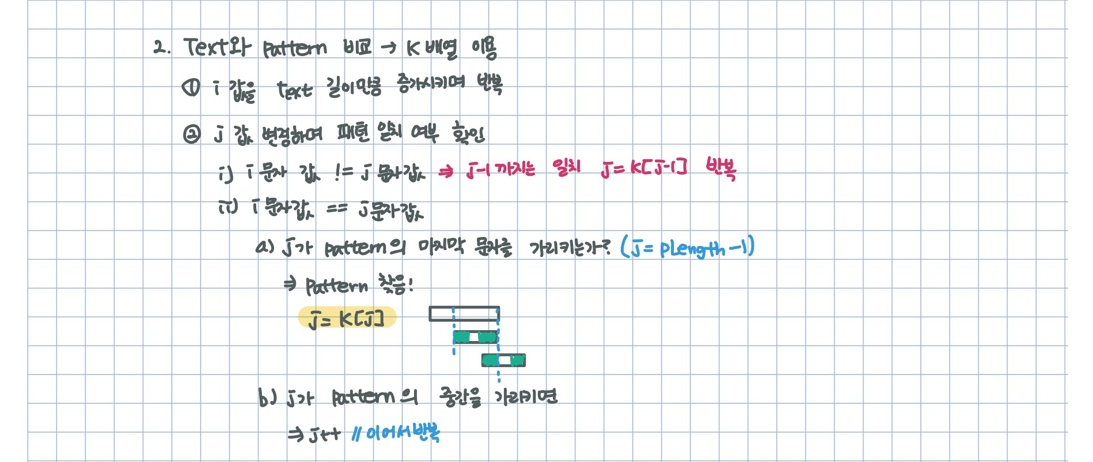 2. Text와 pattern 비교 → K 배열 이용
① i 값을 text 길이만큼 증가시키며 반복
② j 값 변경하며 패턴 일치 여부 확인
i) i 문자 값 != j 문자값 ⇒ j-1 까지는 일치 j = K[j-1] 반복
ii) i 문자값 == j 문자값
a) j가 pattern의 마지막 문자를 가리키는가? (j = pLength -1)
⇒ pattern 찾음!
j = K[j]
b) j가 pattern의 중간을 가리키면
⇒ j++ // 이어서 반복